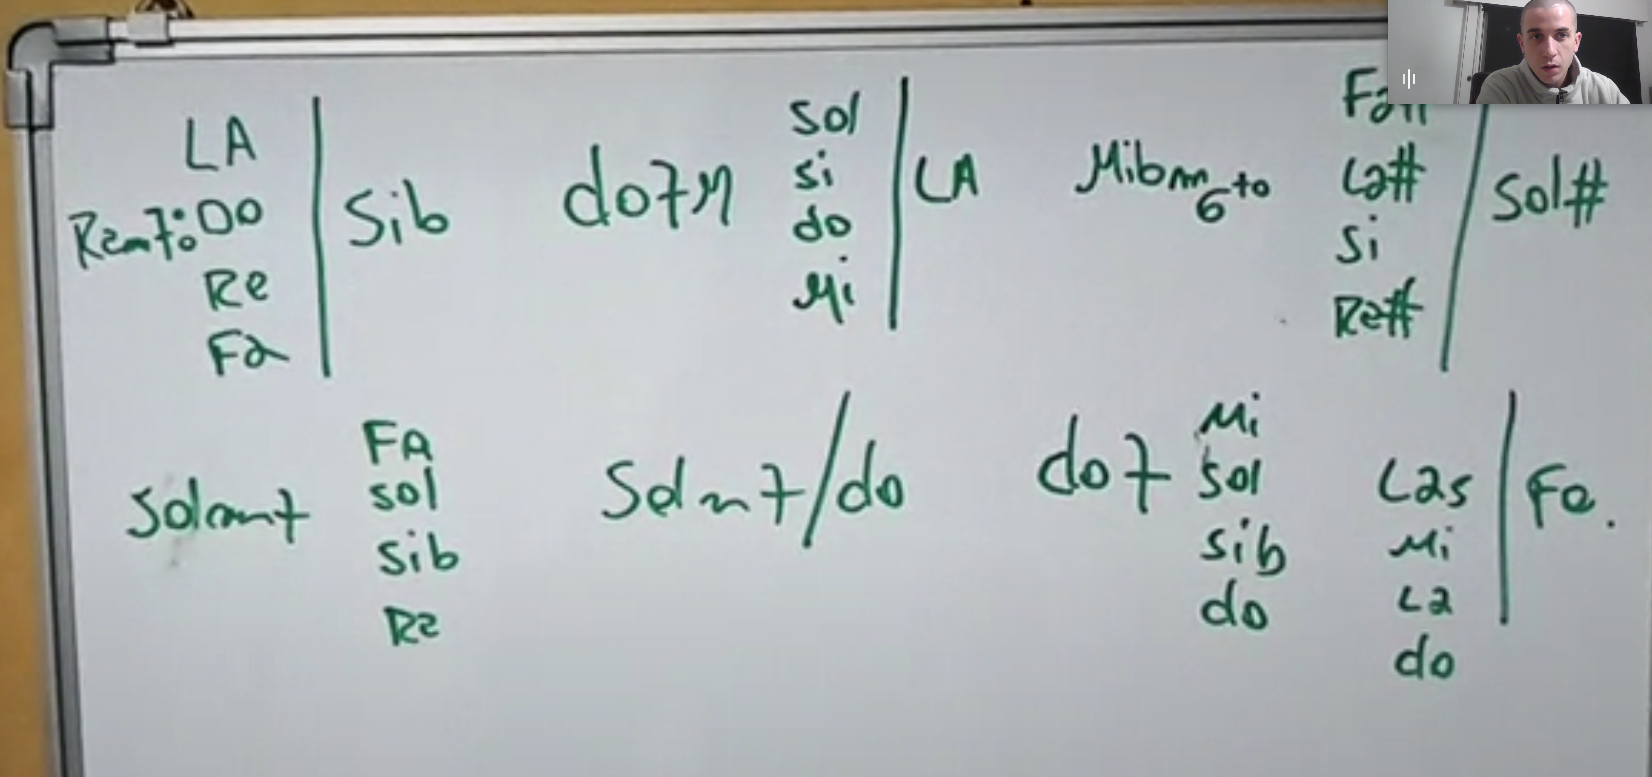 LA
Rem7: Do
Re
Fa
Sib
do7M
sol
si
do
Mi
LA
Mibm 6to
Fa#
La#
si
Re#
Sol#
Solm7
FA
sol
sib
Re
Solm7/do
do7
Mi
sol
sib
do
Las
Mi
La
do
Fa.